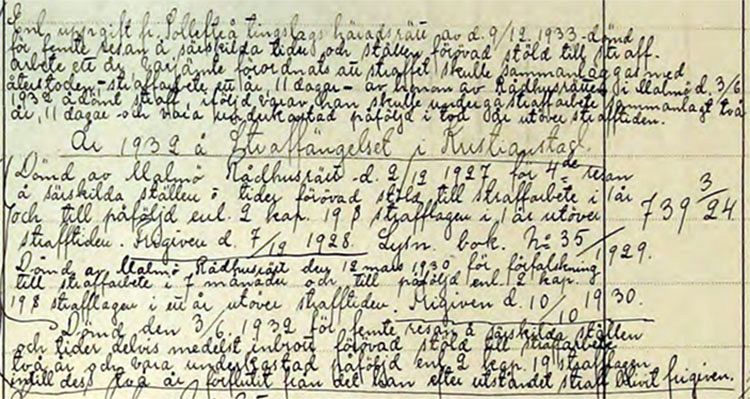 Enl. uppgift fr. Sollefteå tingslags häradsrätt av d. 9/12 1933 dömd
för femte resan å särskilda tider och ställen förövad stöld till straff-
arbete ett år varjämte förordnats att straffet skulle sammanläggas med
återstoden - straffarbete ett år, 11 dagar - av honom av Rådhusrätten i Malmö d. 3/6
1932 ådömt straff, i följd varav han skulle undergå straffarbete sammanlagt två
år, 11 dagar och vara underkastad påföljd i två år utöver strafftiden.
År 1932 å Straffängelset i Kristianstad.
Dömd av Malmö Rådhusrätt d. 2/12 1927 för 4de resan
å särskilda ställen o tider förövad stöld till straffarbete i 1 år
och till påföljd enl. 2 kap. 19 § strafflagen i 1 år utöver 739 3/24
strafftiden. Frigiven d. 7/12 1928. Lysn. bok. No 35/1929.
Dömd av Malmö Rådhusrätt den 12 mars 1930 för förfalskning
till straffarbete i 7 månader och till påföljd enl. 2 kap.
19 § strafflagen i ett år utöver strafftiden. Frigiven d. 10/10 1930.
Dömd den 3/6 1932 för femte resan å särskilda ställen
och tider delvis medelst inbrott förövad stöld till straffarbete
två år och vara underkastad påföljd enl. 2 kap. 19 § strafflagen
intill dess två år förflutit från det han efter utståndet straff blivit frigiven.